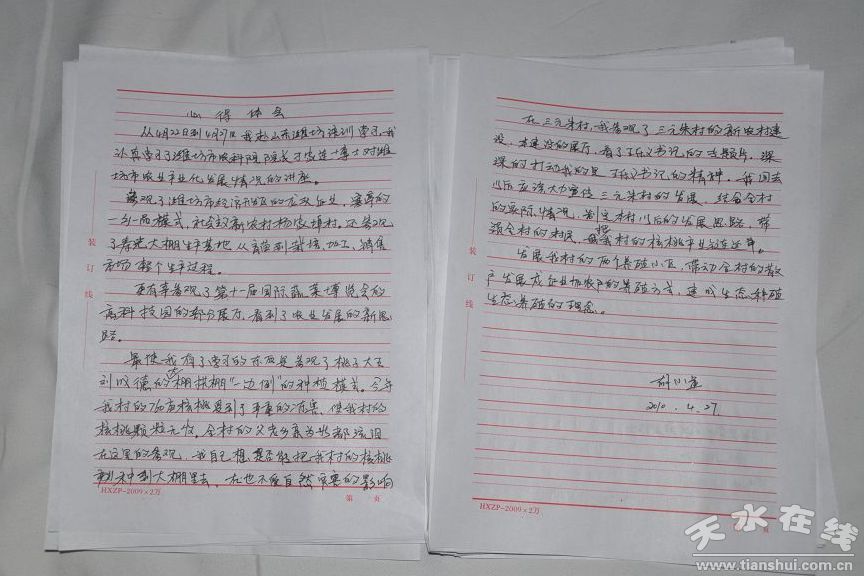 心得体会
从4月22日到4月27日我赴山东潍坊培训学习,我
认真学习了潍坊市农科院院长 博士对潍
坊市农业产业化发展情况的讲座。
参观了潍坊市经济开发区的龙头企业,
一乡一品模式,社会主义新农村杨家埠村。还参观
了寿光大棚生产基地从育苗到栽培、加工、销售
市场整个生产过程。
更有幸参观了第十一届国际蔬菜博览会的
高科技园的部分展厅,看到了农业发展的新思
路。
最使我有了学习的东西是参观了桃子大王
刘 德的大棚桃棚"一边倒"的种植模式。今年
我村的760亩核桃受到了 的危害,使我村的
核桃颗粒无收,全村的父老乡亲为此都流泪
在这里的参观,我自己想是否能把我村的核桃
种到大棚里去,在也不受自然灾害的影响
装
订
线
HXZP-2009×2万
第 页
在三元朱村,我参观了三元朱村的新农村建
设,本建设的展厅,看了王乐义书记的专题片,深
深的打动我的是王乐义书记的精神。我回去
以后应该大力宣传三元朱村的发展,结合全村
的实际情况,制定本村以后的发展思路,带
领全村的村民,把我村的核桃产业
发展我村的两个养殖小区,带动全村的散
户发展成企业加农户的养殖方式,建成生态种植
生态养殖的理念。
2010.4.27
装
订
线
HXZP-2009×2万
页
天水在线
www.tianshui.com.cn